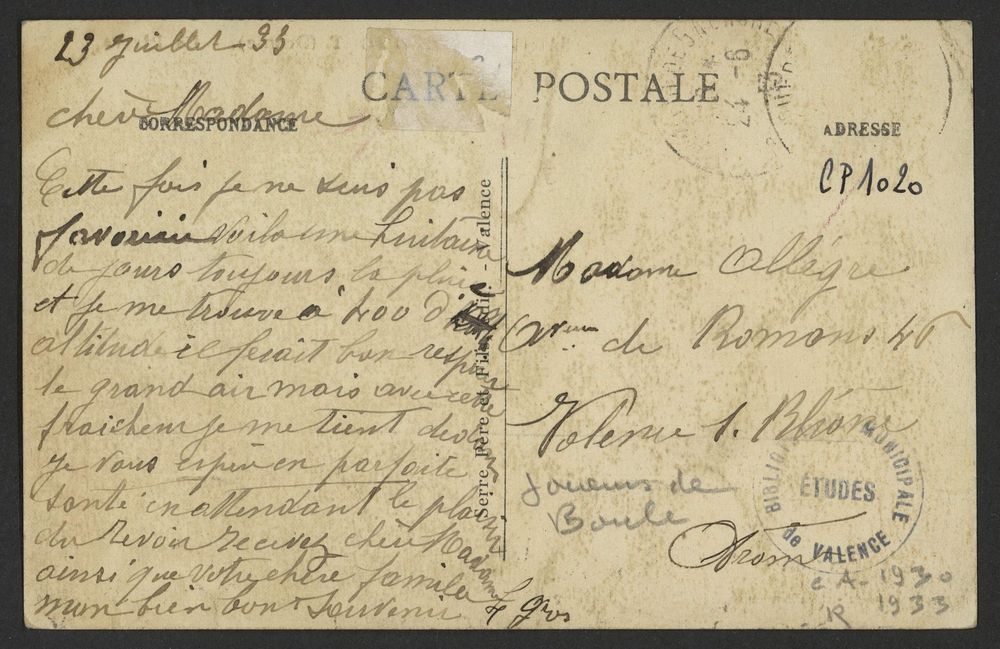 23 Juillet 33
CARTE POSTALE
chère Madame
CORRESPONDANCE
Cette fois je ne suis pas
favorisée voila une huitaine
de jours toujours la pluie
et je me trouve à 400 d'
altitude il ferait bon respirer
le grand air mais avec cette
fraicheur je me tient dedans
Je vous espère en parfaite
santé en attendant le plaisir
du revoir recevez chère Madame
ainsi que votre chère famille
mon bien bon souvenir
Serre Père et Fils, édit. - Valence
ADRESSE
CP1020
Madame Allègre
de Romans 46
Valence s. Rhône
Drôme
Joueurs de
Boule
BIBLIOTHÈQUE MUNICIPALE
ÉTUDES
de VALENCE
CA-1930
R 1933